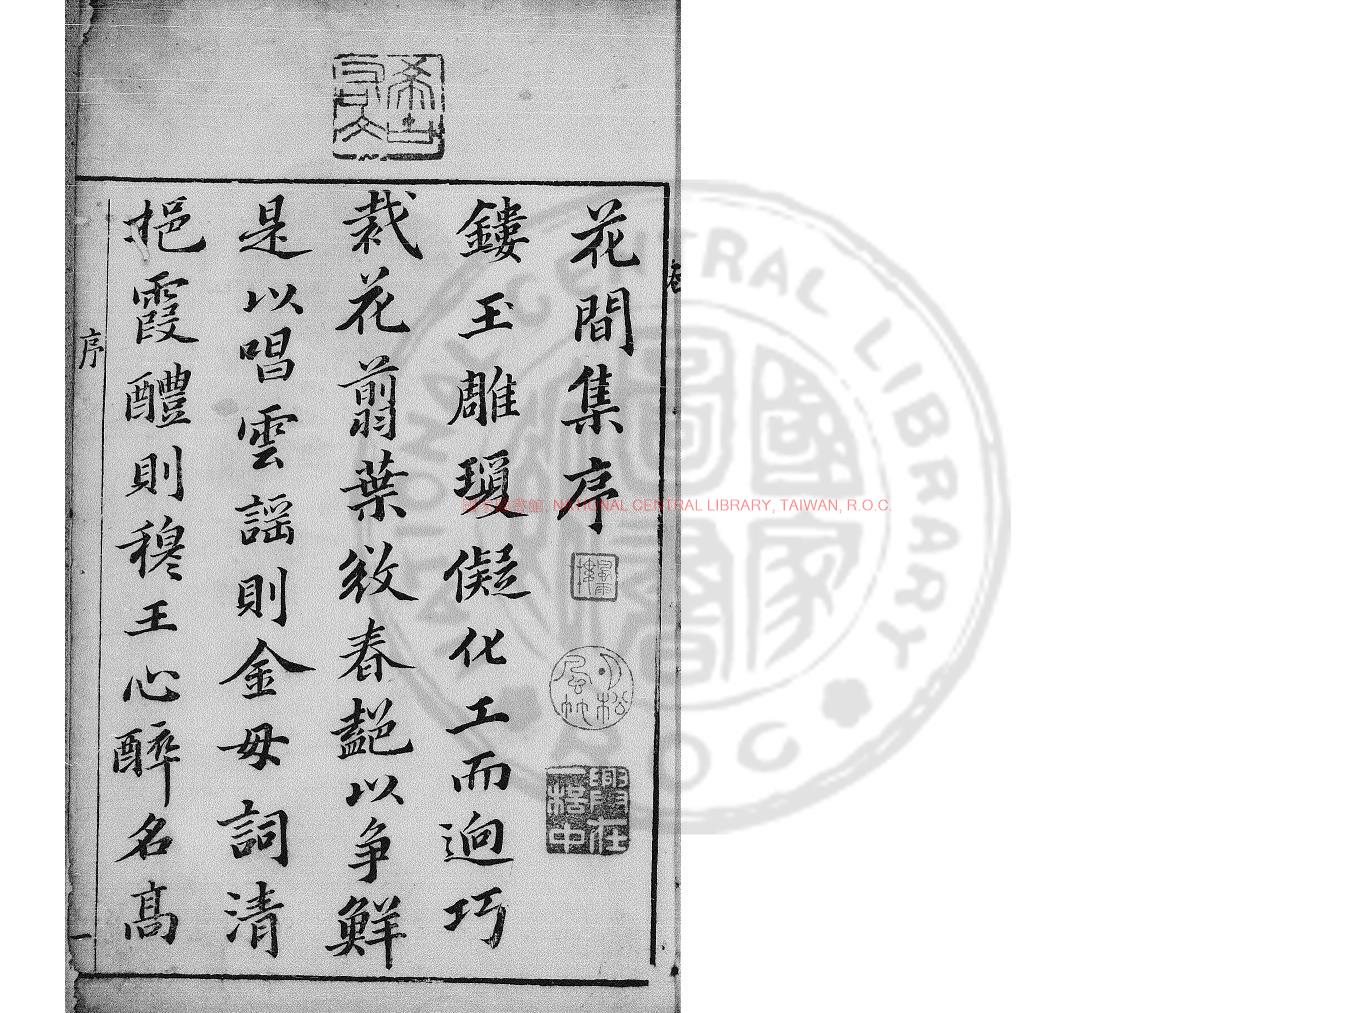 花間集序
鏤玉雕瓊儗化工而迥巧
裁花翦葉敚春豔以爭鮮
是以唱雲謠則金母詞清
挹霞醴則穆王心醉名高
序
一
國家圖書館, NATIONAL CENTRAL LIBRARY, TAIWAN, R.O.C.
NATIONAL CENTRAL LIBRARY
R.O.C
國家圖書館